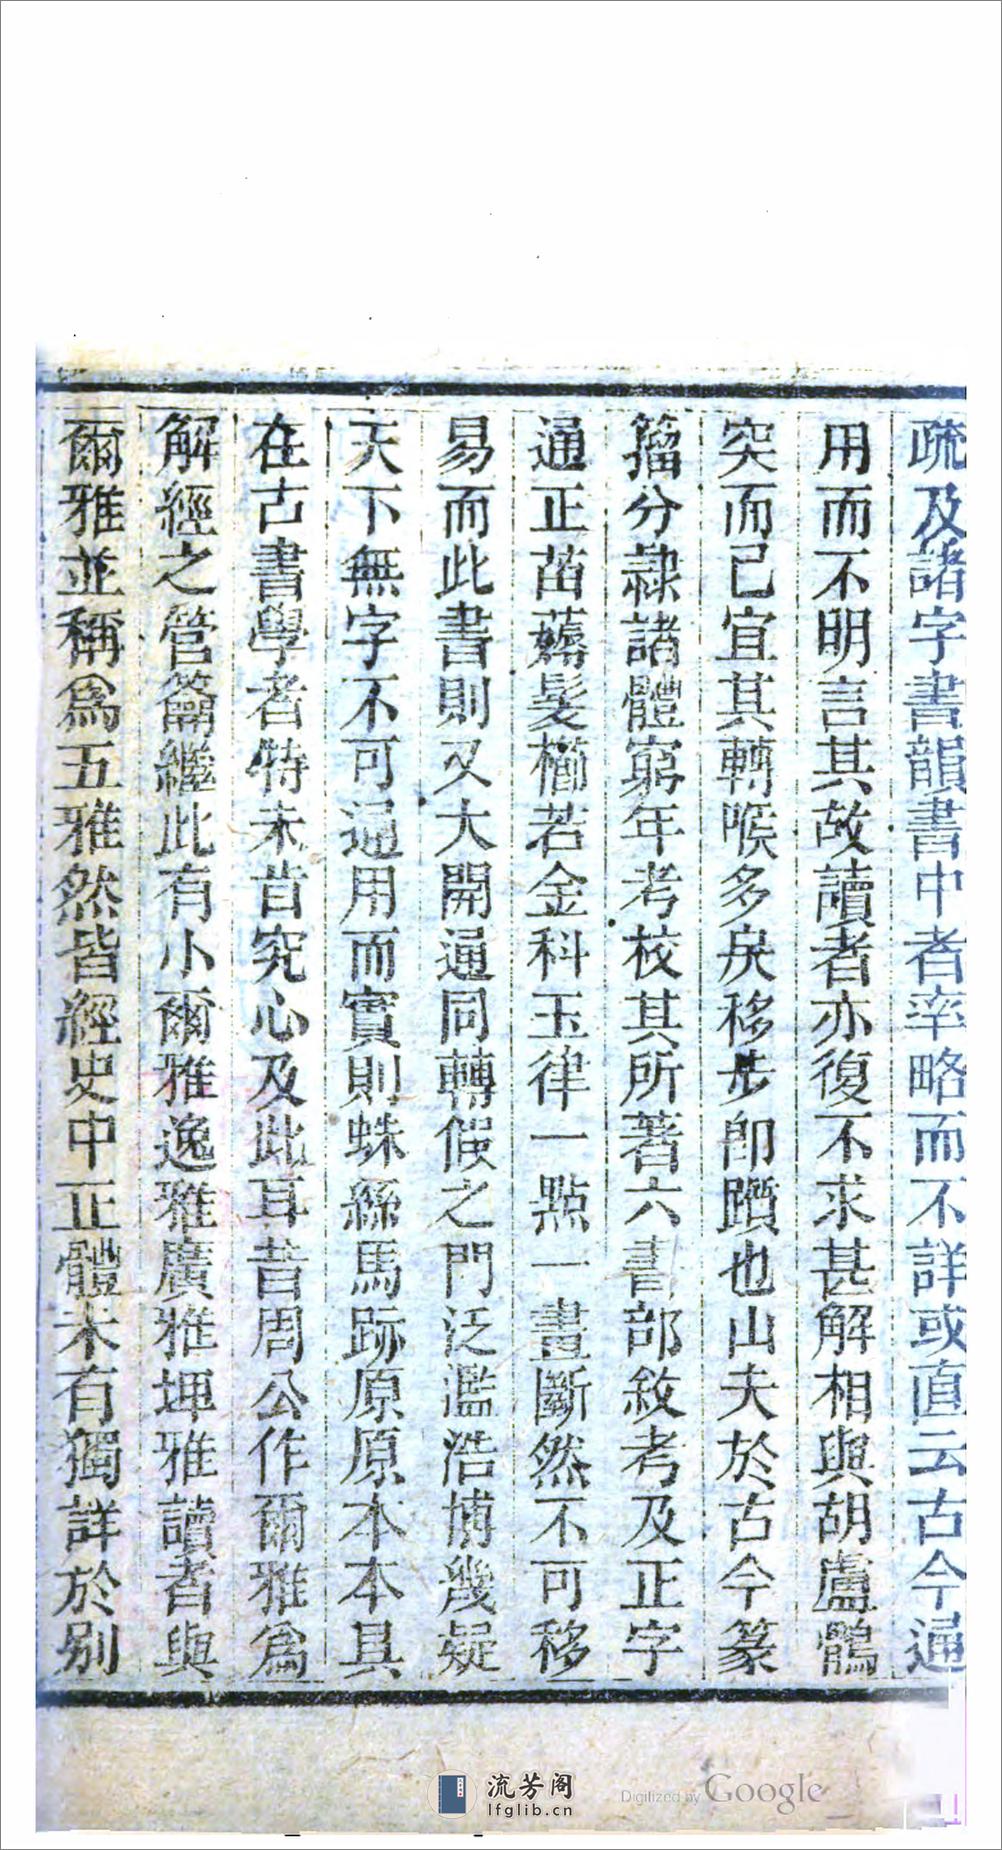 疏及諸字書韻書中者率略而不詳或直云古今通
用而不明言其故讀者亦復不求甚解相與胡盧鶻
突而已宜其轉喉多戾移步卽躓也山夫於古今篆
籀分隸諸體窮年考校其所著六書部敘考及正字
通正苗薅髮櫛若金科玉律一點一畫斷然不可移
易而此書則又大開通同轉假之門泛濫浩博幾疑
天下無字不可通用而實則蛛絲馬跡原原本本具
在古書學者特未肯究心及此耳昔周公作爾雅爲
解經之管籥繼此有小爾雅逸雅廣雅埤雅讀者與
爾雅並稱爲五雅然皆經史中正體未有獨詳於別
流芳阁
lfglib.cn
Digitized by Google